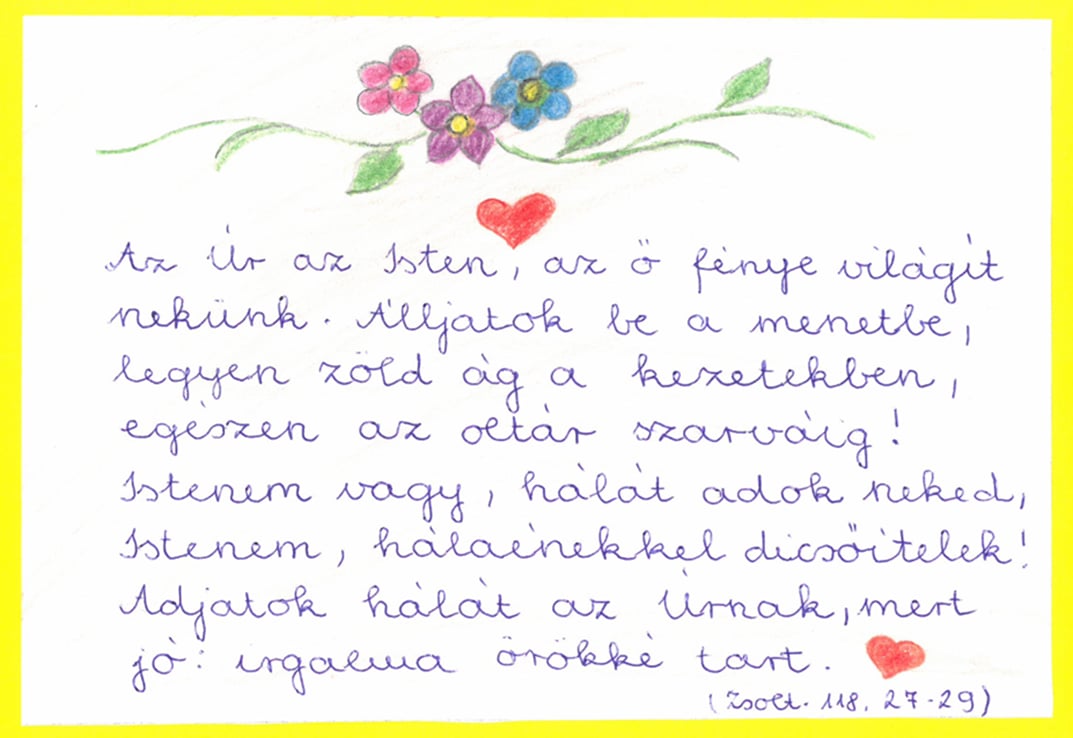 Az Úr az Isten, az ő fénye világít
nekünk. Álljatok be a menetbe,
legyen zöld ág a kezetekben,
egészen az oltár szarváig!
Istenem vagy, hálát adok neked,
Istenem, hálaénekkel dicsőítelek!
Adjatok hálát az Úrnak, mert
jó: irgalma örökké tart.
(Zsolt. 118, 27-29)